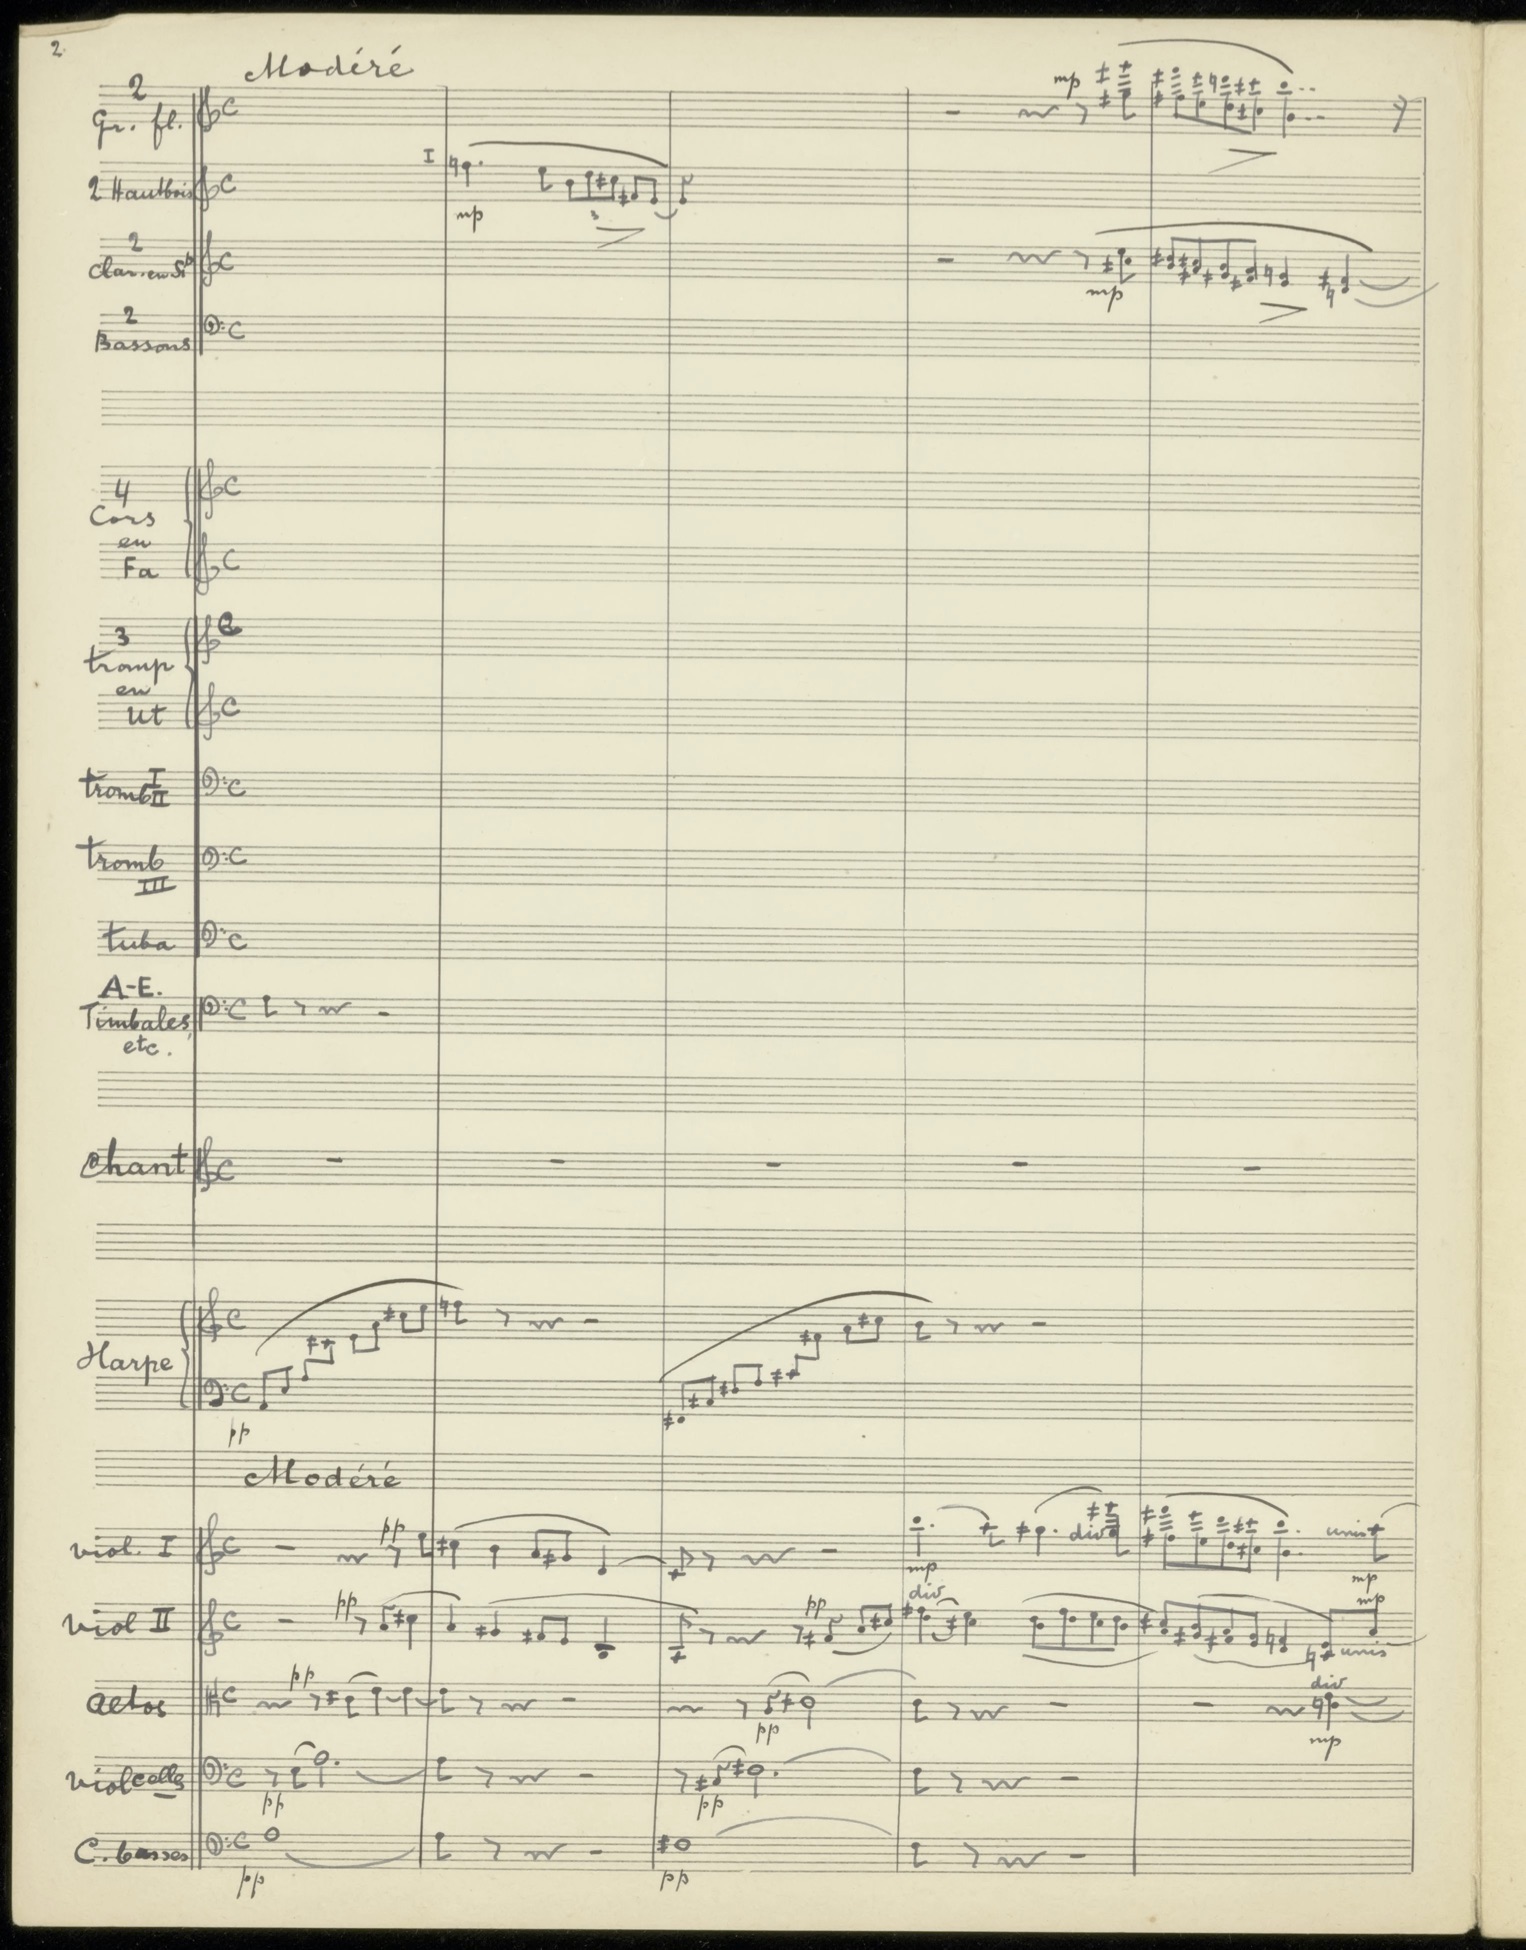 2.
Modéré
2
Gr. fl.
mp
I
2 Hautbois
mp
3
2
Clar. en Si♭
mp
2
Bassons
4
Cors
en
Fa
3
tromp
en
Ut
tromb I II
tromb
III
tuba
A-E.
Timbales,
etc.
Chant
Harpe
pp
Modéré
viol. I
pp
div
unis
mp
mp
Viol II
pp
pp
div
mp
unis
altos
pp
pp
div
mp
violcelles
pp
pp
C. basses
pp
pp